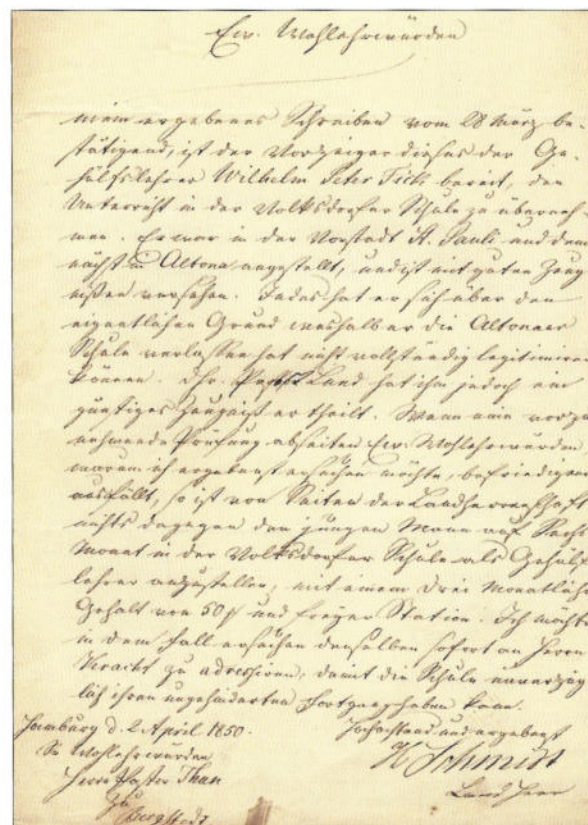 Ew. Wohlehrwürden
mein ergebenes Schreiben vom 28 März be-
stätigend, ist der Vorzeiger dieses der Ge-
hülfslehrer Wilhelm Peter Fick bereit, den
Unterricht in der Volksdorfer Schule zu überneh
men. Er war in der Vorstadt St. Pauli und dem
nächst in Altona angestellt, und ist mit guten Zeug
nißen versehen. Indes hat er sich über den
eigentlichen Grund weshalb er die Altonaer
Schule verlassen hat nicht vollständig legitimiren
können. Land hat ihm jedoch ein
günstiges Zeugniß ertheilt. Wenn eine vorzu
nehmende Prüfung abseiten Ew. Wohlehrwürden
warum ich ergebenst ersuchen möchte, befriedigend
ausfällt, so ist von Seiten der Landherrenschaft
nichts dagegen den jungen Mann auf Sechs
Monat in der Volksdorfer Schule als Gehülfs
lehrer anzustellen, mit einem drei Monatlichen
Gehalt von 50 und freyer Station. Ich möchte
in dem Fall ersuchen denselben sofort an Herrn
zu adressiren, damit die Schule unverzüg
lich ihren ungehinderten Fortgang haben kann.
Hamburg d. 2 April 1850. Hochachtend und ergebenst
Sr Wohlehrwürden Schmidt
Herrn Pastor Than Landherr
zu
Bergstedt